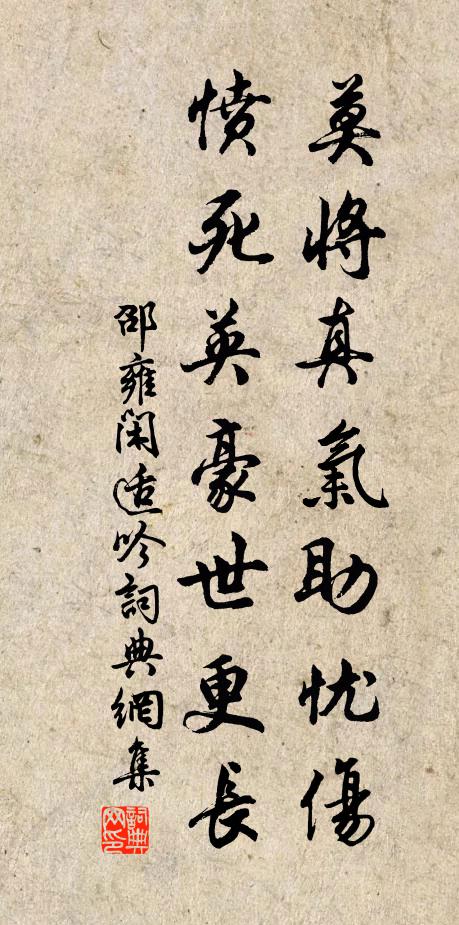 莫將真氣助忧傷
憤死英豪世更長
邵雍閑适吟詞典網集
詞典网印